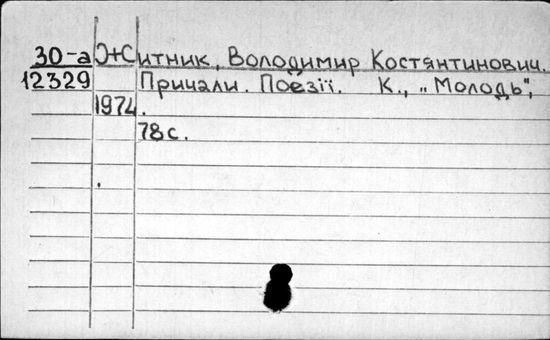 30-а Житник, Володимир Костянтинович.
12329 Причали. Поезії. К., „Молодь",
1974.
78 с.